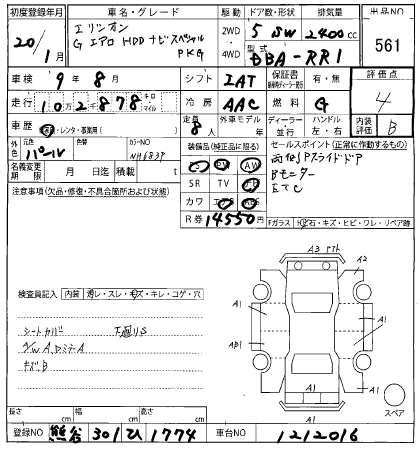 初度登録年月 車名・グレード 駆動 ドア数・形状 排気量 出品NO
20/1月 エリシオン 2WD 5 SW 2400cc 561
G エアロ HDD ナビスペシャル PKG 4WD 型式 DBA-RR1
車検 9年8月 シフト IAT 保証書 有・無 評価点
走行 10万2千878 キロ マイル 冷房 AAC 燃料 G 4
車歴 レンタ・事業用( ) 定員 8人 外車モデル 年 ディーラー 並行 ハンドル 左・右 内装評価 B
外色 元色 パール カラーNO NH683P 装備品(純正品に限る) セールスポイント(正常に作動するもの)
名義変更期限 月 日迄 積載量 t PS PW AW 両側Pスライドドア
注意事項(欠品・修復・不具合箇所および状態) SR TV ナビ Bモニター
カワ エアB ABS ETC
R券 14550円 Fガラス 飛石・キズ・ヒビ・ワレ・リペア跡
A3
A2
検査員記入 内装 汚レ・スレ・キズ・キレ・コゲ・穴
A1
A1
シートカバー 下廻りS
A/W A,ロミラーA
AB1
キズB
A1
A1
A1
スペア
長さ cm 幅 cm 高さ cm
登録NO 熊谷 301 ひ 1774 車台NO 1212016